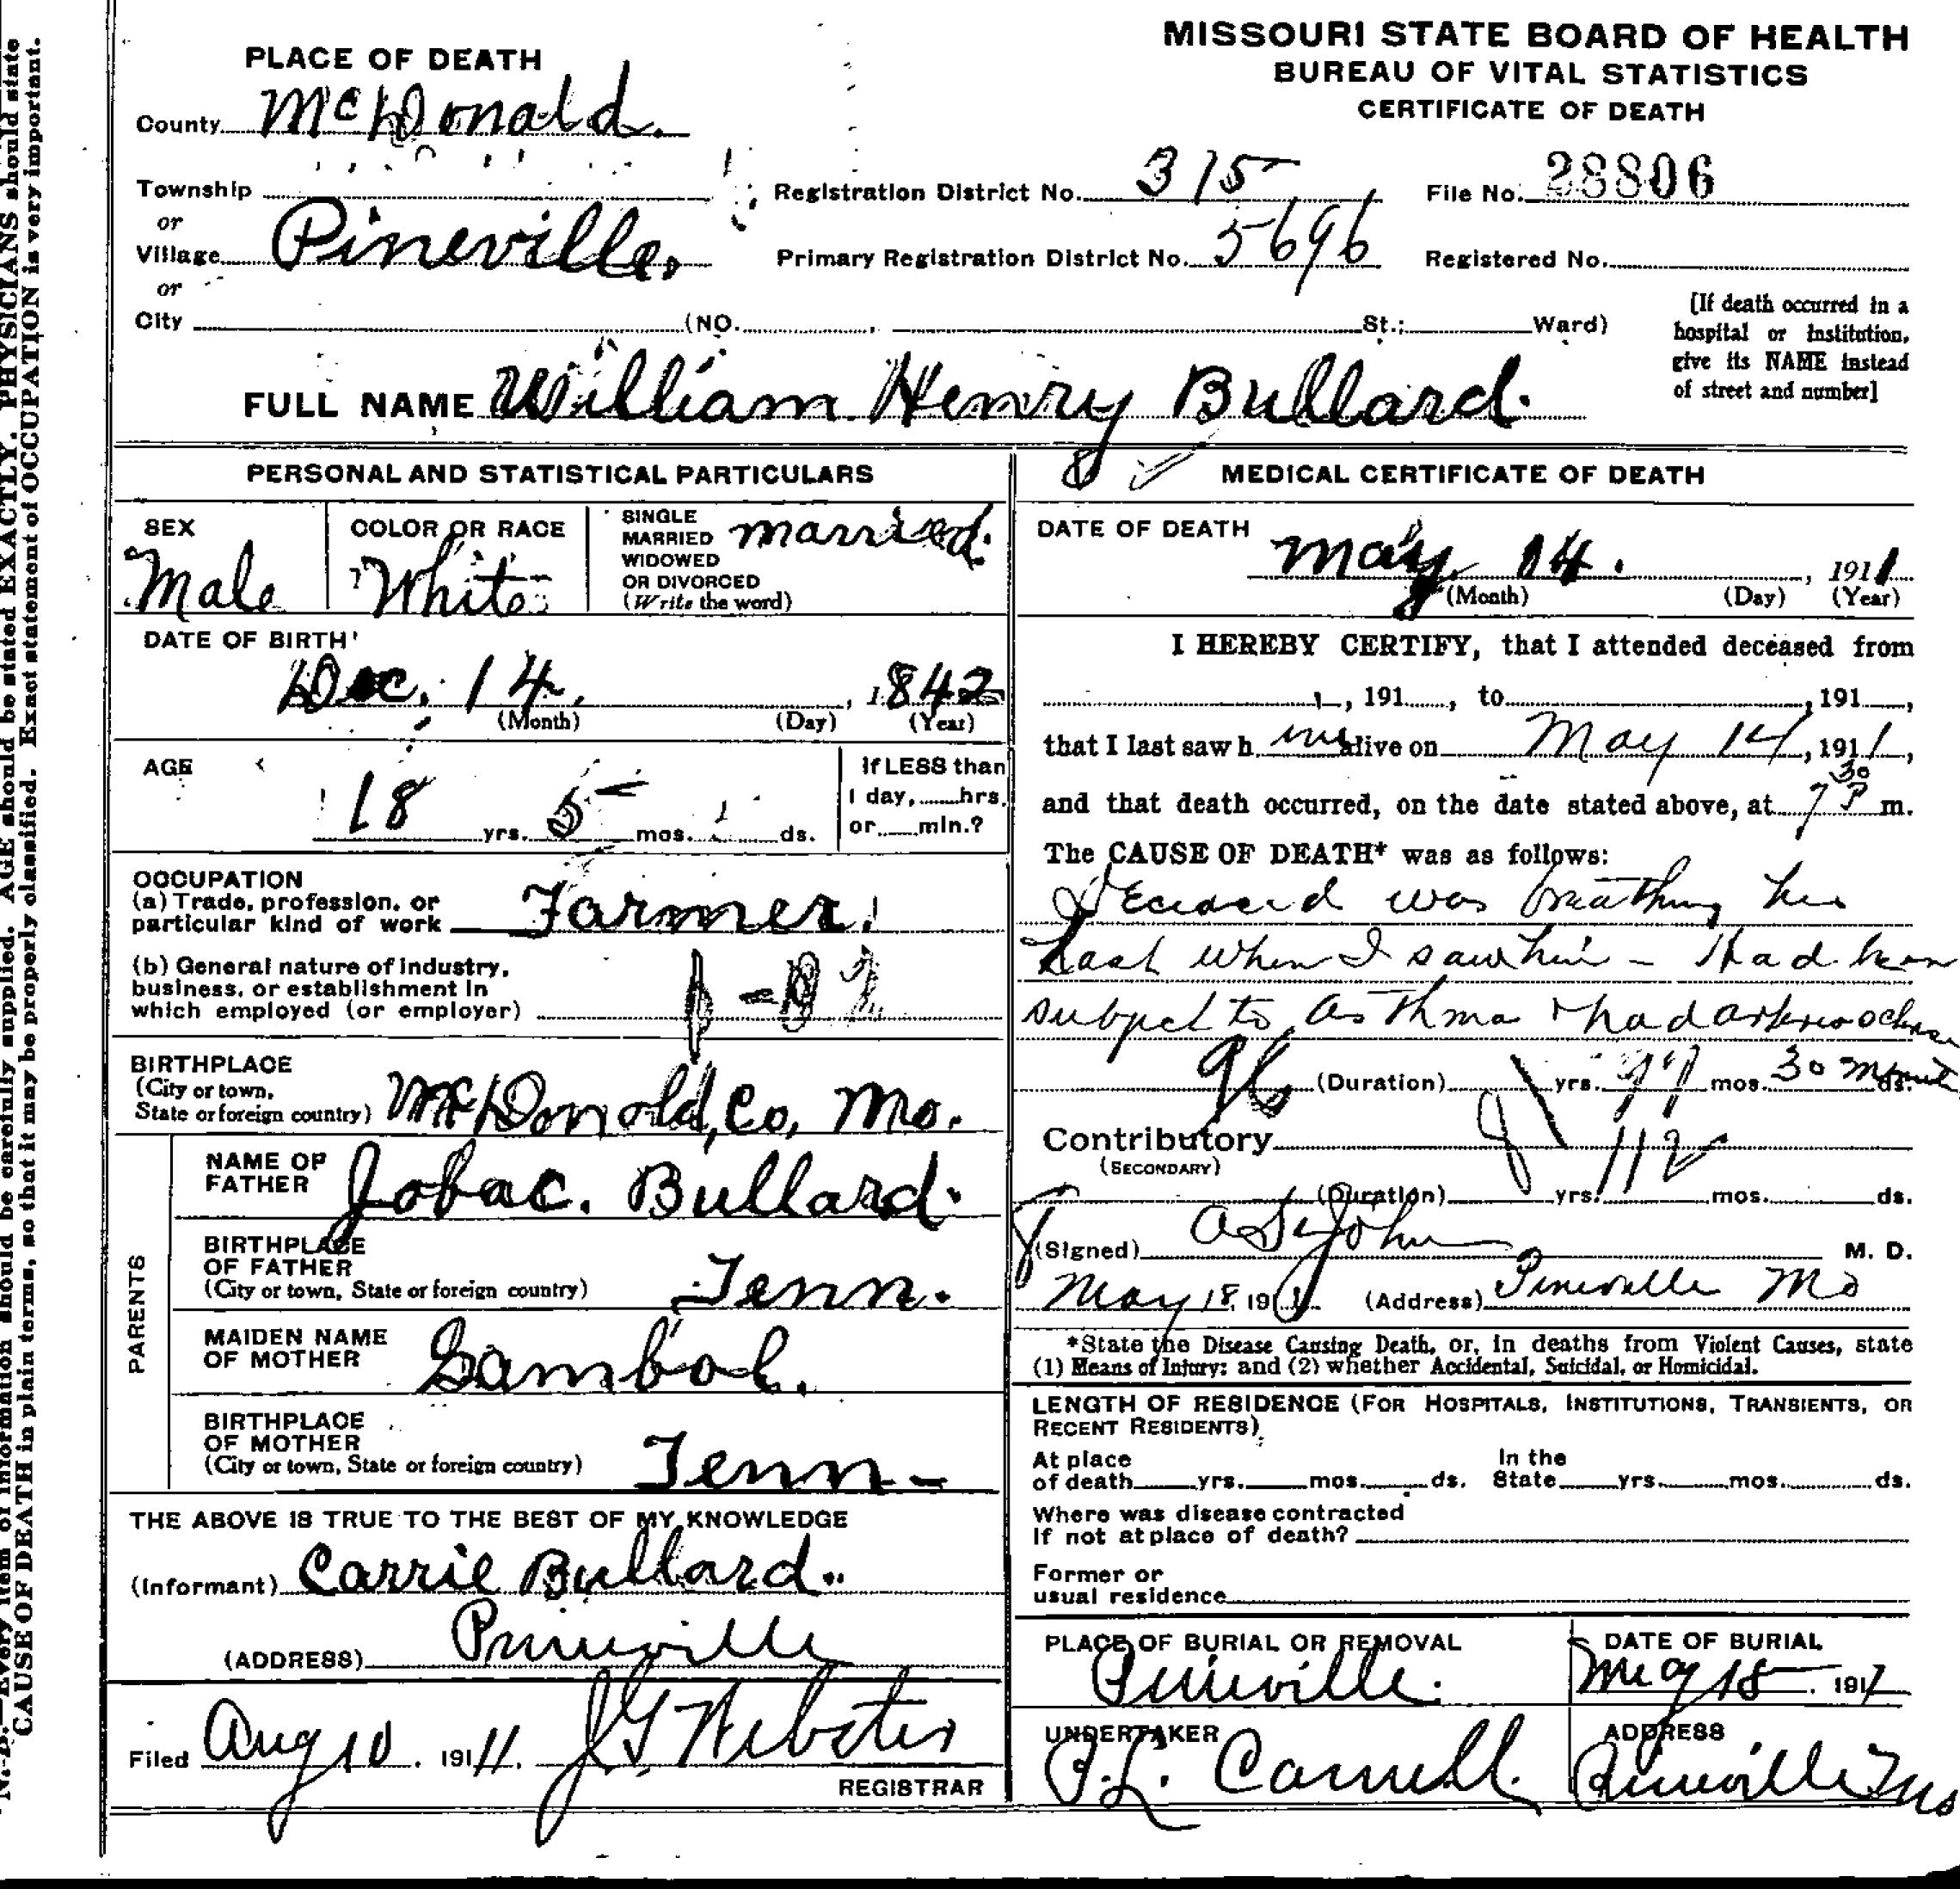 MISSOURI STATE BOARD OF HEALTH
BUREAU OF VITAL STATISTICS
CERTIFICATE OF DEATH
PLACE OF DEATH
County McDonald.
Township
or
Village Pineville.
or
City (NO. , St.; Ward)
Registration District No. 315
File No. 28806
Primary Registration District No. 5696
Registered No.
[If death occurred in a
hospital or institution,
give its NAME instead
of street and number]
FULL NAME William Henry Bullard.
PERSONAL AND STATISTICAL PARTICULARS
SEX
Male
COLOR OR RACE
White
SINGLE
MARRIED
WIDOWED
OR DIVORCED
(Write the word)
married.
DATE OF BIRTH
Dec. 14, , 1842
(Month) (Day) (Year)
AGE
18 yrs. 5 mos. ds.
If LESS than
1 day, hrs.
or min.?
OCCUPATION
(a) Trade, profession, or
particular kind of work Farmer.
(b) General nature of industry,
business, or establishment in
which employed (or employer)
BIRTHPLACE
(City or town,
State or foreign country) McDonald, Co, Mo.
PARENTS
NAME OF
FATHER Bullard.
BIRTHPLACE
OF FATHER
(City or town, State or foreign country) Tenn.
MAIDEN NAME
OF MOTHER Gambol.
BIRTHPLACE
OF MOTHER
(City or town, State or foreign country) Tenn-
THE ABOVE IS TRUE TO THE BEST OF MY KNOWLEDGE
(Informant) Carrie Bullard.
(ADDRESS) Pineville
Filed Aug 10. 1911. J G Webster
REGISTRAR
MEDICAL CERTIFICATE OF DEATH
DATE OF DEATH
May 14. , 1911
(Month) (Day) (Year)
I HEREBY CERTIFY, that I attended deceased from
, 191 , to , 191 ,
that I last saw h im alive on May 14, 1911,
and that death occurred, on the date stated above, at 7 30 P m.
The CAUSE OF DEATH* was as follows:
Deceased was breathing his
last when I saw him - Had been
subject to asthma & had
96 (Duration) yrs. mos. 30 ds.
Contributory
(SECONDARY)
112
(Duration) yrs. mos. ds.
(Signed) M. D.
May 18, 1911 (Address) Pineville Mo
*State the Disease Causing Death, or, in deaths from Violent Causes, state
(1) Means of Injury; and (2) whether Accidental, Suicidal, or Homicidal.
LENGTH OF RESIDENCE (FOR HOSPITALS, INSTITUTIONS, TRANSIENTS, OR
RECENT RESIDENTS)
At place
of death yrs. mos. ds.
In the
State yrs. mos. ds.
Where was disease contracted
if not at place of death?
Former or
usual residence
PLACE OF BURIAL OR REMOVAL
Pineville.
DATE OF BURIAL
May 18 , 1911
UNDERTAKER
ADDRESS
Pineville Mo
N. B.—Every item of information should be carefully supplied. AGE should be stated EXACTLY. PHYSICIANS should state
CAUSE OF DEATH in plain terms, so that it may be properly classified. Exact statement of OCCUPATION is very important.